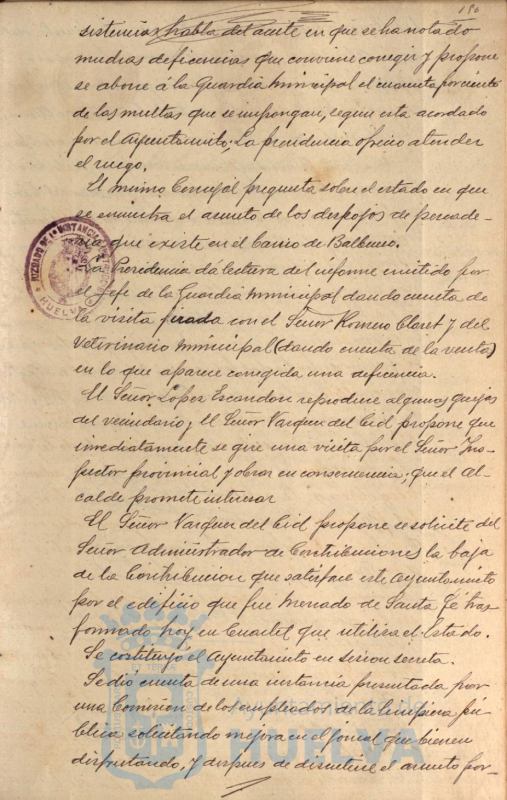 180
sistencias habla del aceite en que se ha notado
muchas deficencias que conviene coregir y propone
se abone á la Guardia Municipal el cincuenta por ciento
de las multas que se impongan, segun esta acordado
por el Ayuntamiento; La presidencia ofrecio atender
el ruego.
El mismo Concejal pregunta sobre el estado en que
se encuentra el asunto de los despojos de pescade-
ria que existe en el Barrio de Balbueno.
La Presidencia dá lectura del informe emitido por
el Jefe de la Guardia Municipal dando cuenta de
la visita girada con el Señor Romero Claret y del
Veterinario Municipal (dando cuenta de la venta)
en lo que aparece corregida una deficencia.
El Señor López Escandon reproduce algunas quejas
del vecindario; El Señor Vazquez del Cid propone que
inmediatamente se gire una visita por el Señor Ins-
pector provincial y obrar en consecuencia; que el Al-
calde promete interesar
El Señor Vazquez del Cid propone se solicite del
Señor Administrador de Contribuciones la baja
de la Contribucion que satisface este Ayuntamiento
por el edificio que fue Mercado de Santa Fé tras
formado hoy en Cuartel que utiliza el Estado.
Se costituyó el Ayuntamiento en sesion secreta.
Se dió cuenta de una instancia presentada por
una Comision de los empleados de la limpieza pú-
blica solicitando mejora en el jornal que bienen
disfrutando, y despues de discutirse el asunto por-
JUZGADO DE 1ª INSTANCIA
HUELVA
Ayuntamiento de
HUELVA